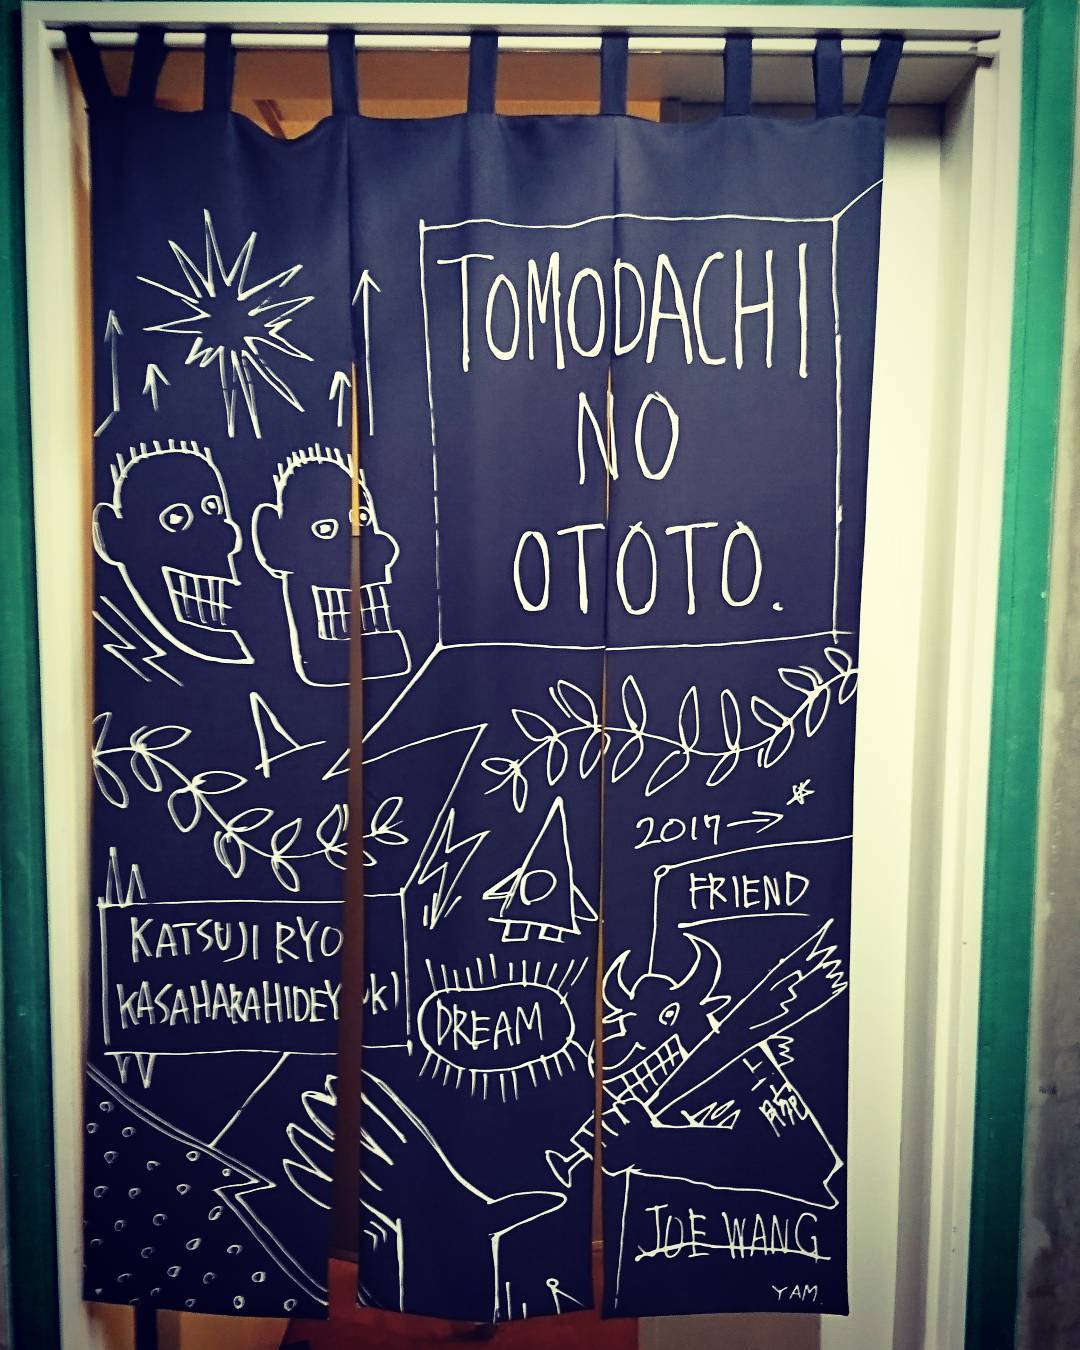 TOMODACHI
NO
OTOTO.
2017→
FRIEND
KATSUJI RYO
KASAHARAHIDEYUKI
DREAM
JOE WANG
YAM.